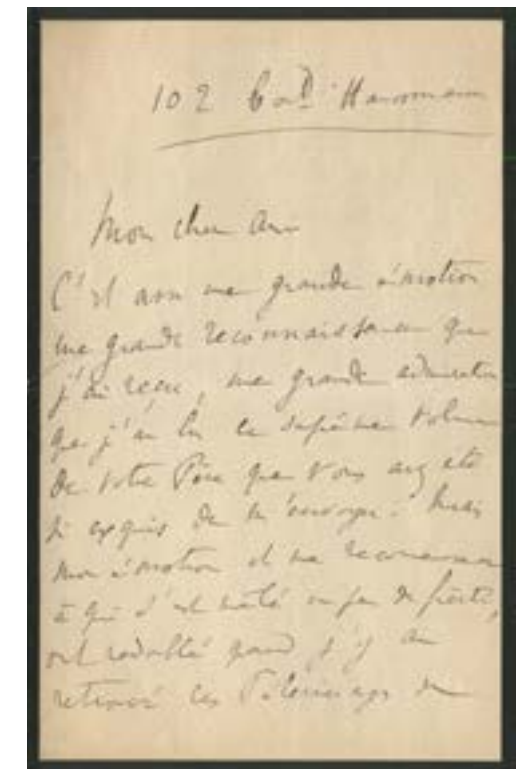 102 Bould Haussmann
Mon cher ami
C'est avec une grande émotion
une grande reconnaissance que
j'ai reçu, une grande admiration
que j'ai lu ce suprême volume
de votre Père que vous avez été
si exquis de m'envoyer. Mais
mon émotion et ma reconnaissance
à qui s'est mêlé un peu de fierté,
ont redoublé quand j'y ai
retrouvé ces Pèlerinages de